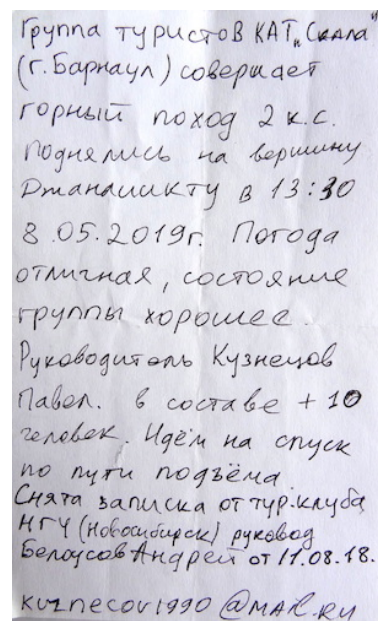 Группа туристов КАТ „Скала"
(г. Барнаул) совершает
горный поход 2 к.с.
Поднялись на вершину
Джаналикту в 13:30
8.05.2019г. Погода
отличная, состояние
группы хорошее.
Руководитель Кузнецов
Павел. в составе + 10
человек. Идём на спуск
по пути подъёма.
Снята записка от тур.клуба
НГУ (Новосибирск) руковод
Белоусов Андрей от 11.08.18.
kuznecov1990@mail.ru